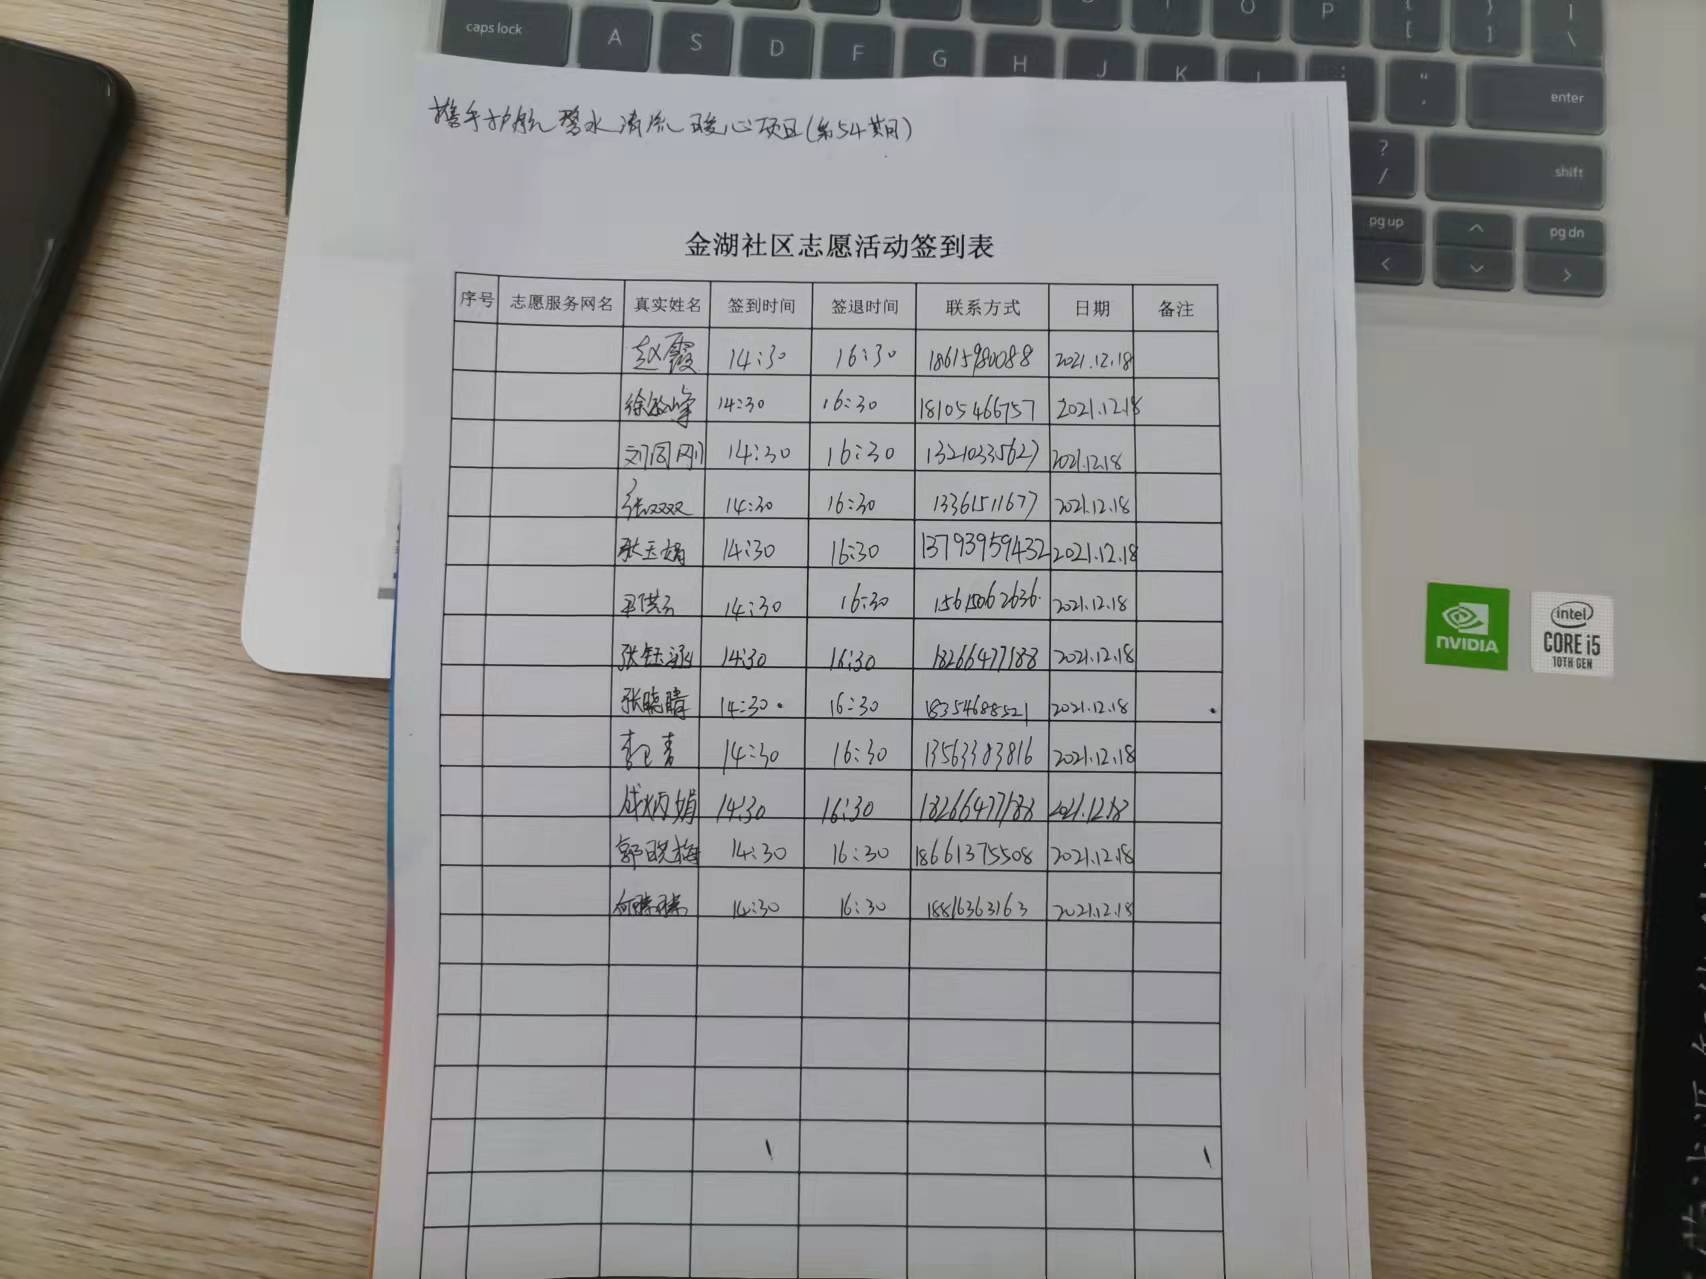 caps lock A S D F G H J K L : ; " ' enter
O P { [ } ] | \
? / shift
pg up pg dn
携手护航 碧水清流 暖心项目(第54期)
金湖社区志愿活动签到表
序号 志愿服务网名 真实姓名 签到时间 签退时间 联系方式 日期 备注
赵霞 14:30 16:30 18615980088 2021.12.18
14:30 16:30 18105466757 2021.12.18
刘同刚 14:30 16:30 13210335627 2021.12.18
张双双 14:30 16:30 13361511677 2021.12.18
张玉娟 14:30 16:30 13793959432 2021.12.18
14:30 16:30 15615062636 2021.12.18
张钰涵 14:30 16:30 18266477188 2021.12.18
张晓晴 14:30 16:30 18354688521 2021.12.18
李卫青 14:30 16:30 13563383816 2021.12.18
成炳娟 14:30 16:30 18266477188 2021.12.18
郭晓梅 14:30 16:30 18661375508 2021.12.18
14:30 16:30 18816363163 2021.12.18
NVIDIA
intel
CORE i5
10TH GEN